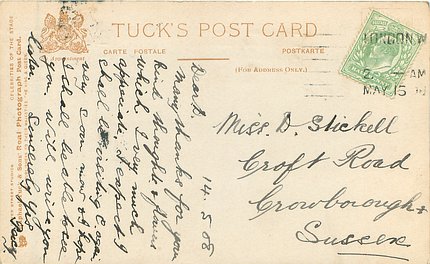 TUCK'S POST CARD
CARTE POSTALE
POSTKARTE
(FOR ADDRESS ONLY.)
LONDON.W
2. AM
MAY 15
14.5.08
Dear D.
Many thanks for your
kind thought & plans
which I very much
appreciate. I expect I
shall be visiting C again
very soon now & hope
I shall be able to see
you. Will write you
later. Sincerely yrs
Miss. D. Stickell
Croft Road
Crowborough
Sussex
CELEBRITIES OF THE STAGE
Real Photograph Post Card.